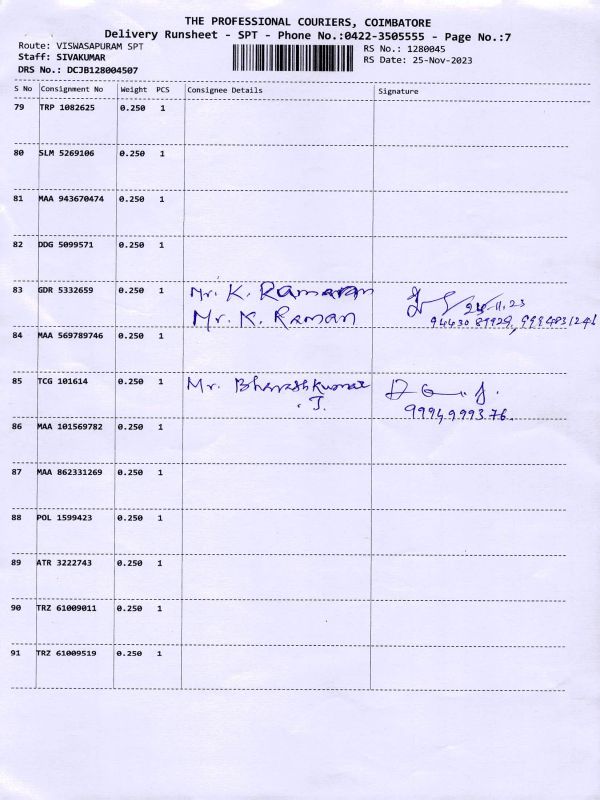 THE PROFESSIONAL COURIERS, COIMBATORE
Delivery Runsheet - SPT - Phone No.:0422-3505555 - Page No.:7
Route: VISWASAPURAM SPT RS No.: 1280045
Staff: SIVAKUMAR RS Date: 25-Nov-2023
DRS No.: DCJB128004507
S No Consignment No Weight PCS Consignee Details Signature
79 TRP 1082625 0.250 1
80 SLM 5269106 0.250 1
81 MAA 943670474 0.250 1
82 DDG 5099571 0.250 1
83 GDR 5332659 0.250 1 Mr. K. Ramaran
Mr. K. Raman
84 MAA 569789746 0.250 1
85 TCG 101614 0.250 1 Mr. Bharathkumar
. J.
9994999376.
86 MAA 101569782 0.250 1
87 MAA 862331269 0.250 1
88 POL 1599423 0.250 1
89 ATR 3222743 0.250 1
90 TRZ 61009011 0.250 1
91 TRZ 61009519 0.250 1